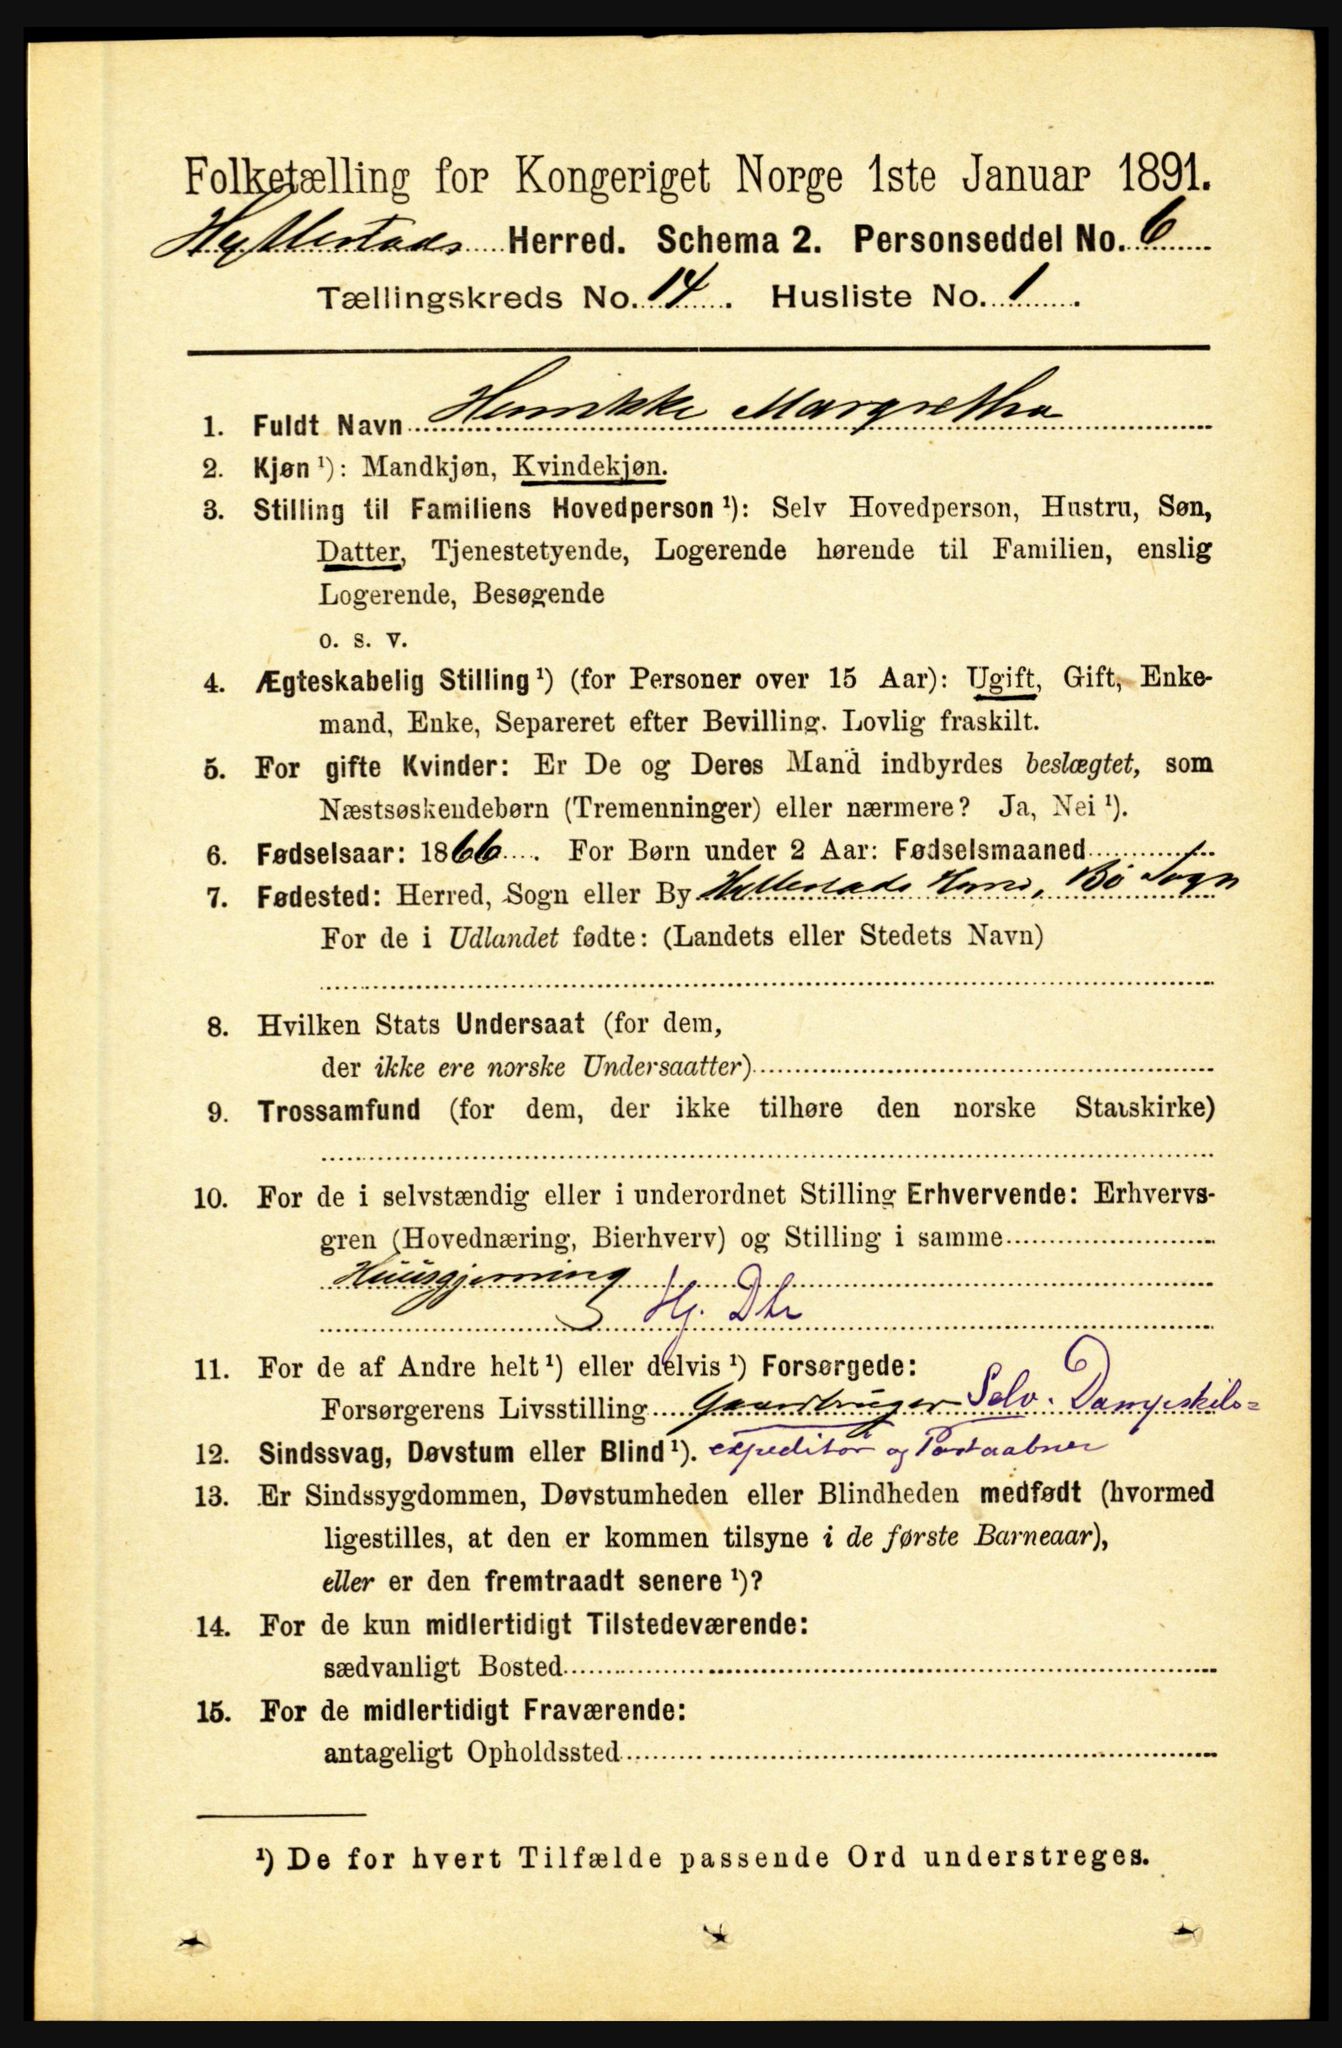 Folketælling for Kongeriget Norge 1ste Januar 1891.
Hyllestads Herred. Schema 2. Personseddel No. 6
Tællingskreds No. 14. Husliste No. 1.
1. Fuldt Navn Henrikke Margretha
2. Kjøn ¹): Mandkjøn, Kvindekjøn.
3. Stilling til Familiens Hovedperson ¹): Selv Hovedperson, Hustru, Søn,
Datter, Tjenestetyende, Logerende hørende til Familien, enslig
Logerende, Besøgende
o. s. v.
4. Ægteskabelig Stilling ¹) (for Personer over 15 Aar): Ugift, Gift, Enke-
mand, Enke, Separeret efter Bevilling. Lovlig fraskilt.
5. For gifte Kvinder: Er De og Deres Mand indbyrdes beslægtet, som
Næstsøskendebørn (Tremenninger) eller nærmere? Ja, Nei ¹).
6. Fødselsaar: 1866. For Børn under 2 Aar: Fødselsmaaned
7. Fødested: Herred, Sogn eller By Hyllestads Herre, Bø Sogn
For de i Udlandet fødte: (Landets eller Stedets Navn)
8. Hvilken Stats Undersaat (for dem,
der ikke ere norske Undersaatter)
9. Trossamfund (for dem, der ikke tilhøre den norske Statskirke)
10. For de i selvstændig eller i underordnet Stilling Erhvervende: Erhvervs-
gren (Hovednæring, Bierhverv) og Stilling i samme
Huusgjerning
Hj. Dtr
11. For de af Andre helt ¹) eller delvis ¹) Forsørgede:
Forsørgerens Livsstilling Gaardbruger Selv. Dampskibs=
12. Sindssvag, Døvstum eller Blind ¹). expeditør og Postaabner
13. Er Sindssygdommen, Døvstumheden eller Blindheden medfødt (hvormed
ligestilles, at den er kommen tilsyne i de første Barneaar),
eller er den fremtraadt senere ¹)?
14. For de kun midlertidigt Tilstedeværende:
sædvanligt Bosted
15. For de midlertidigt Fraværende:
antageligt Opholdssted
¹) De for hvert Tilfælde passende Ord understreges.